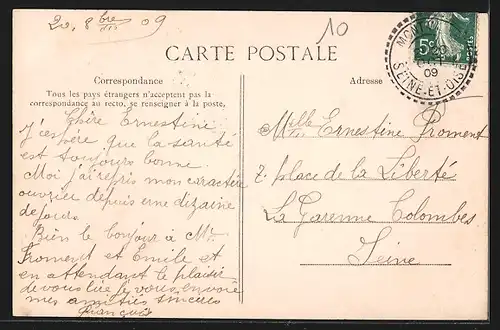 20, 8bre 09
10
CARTE POSTALE
Correspondance
Tous les pays étrangers n'acceptent pas la
correspondance au recto, se renseigner à la poste.
Adresse
5c
SEINE-ET-OISE
09
Chère Ernestine
J'espère que la santé
est toujours bonne.
Moi j'ai repris mon caractère
ouvrier depuis une dizaine
de jours.
Bien le bonjour à Mr
Froment et Emile et
en attendant le plaisir
de vous lire je vous envoie
mes amitiés sincères
François
Mlle Ernestine Froment
7. place de la Liberté
La Garenne Colombes
Seine